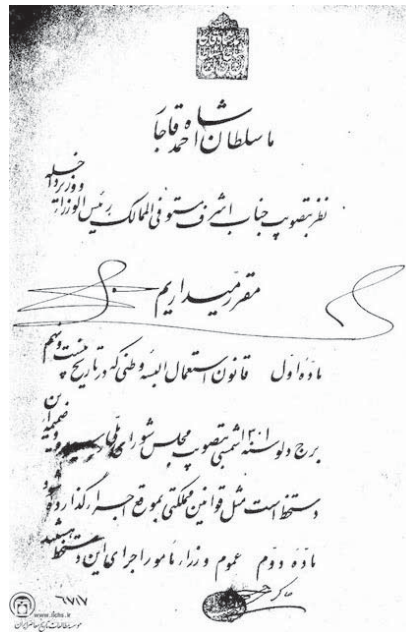 ما سلطان احمد شاه قاجار
نظر بتصویب جناب اشرف مستوفی الممالک رئیس الوزراء و وزیر داخله
مقرر میداریم
ماده اول قانون استعمال البسه وطنی که در تاریخ بیست و نهم
برج دلو سنه ۱۳۰۱ شمسی بتصویب مجلس شورای ملی رسیده و ضمیمه این
دستخط است مثل قوانین مملکتی بموقع اجرا گذارده شود
ماده دوم عموم وزراء مأمور اجرای این دستخط هستند
۶۷۱۷
www.iichs.ir
موسسه مطالعات تاریخ معاصر ایران